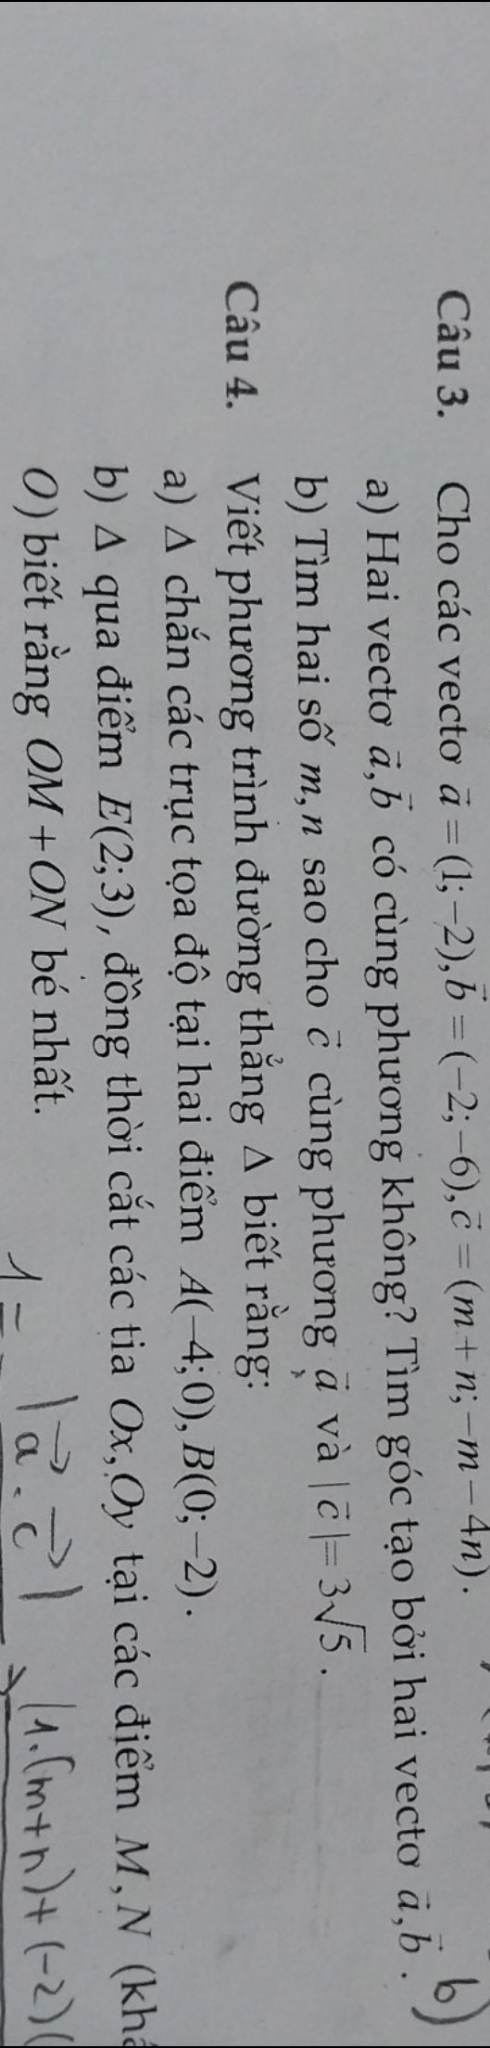 Câu 3. Cho các vectơ \vec{a} = (1; -2), \vec{b} = (-2; -6), \vec{c} = (m + n; -m - 4n).
a) Hai vectơ \vec{a}, \vec{b} có cùng phương không? Tìm góc tạo bởi hai vectơ \vec{a}, \vec{b}.
b)
b) Tìm hai số m, n sao cho \vec{c} cùng phương \vec{a} và |\vec{c}| = 3\sqrt{5}.
Câu 4. Viết phương trình đường thẳng Δ biết rằng:
a) Δ chắn các trục tọa độ tại hai điểm A(-4; 0), B(0; -2).
b) Δ qua điểm E(2; 3), đồng thời cắt các tia Ox, Oy tại các điểm M, N (
O) biết rằng OM + ON bé nhất.
1 = |\vec{a} . \vec{c}| |1.(m+n)+(-2)(